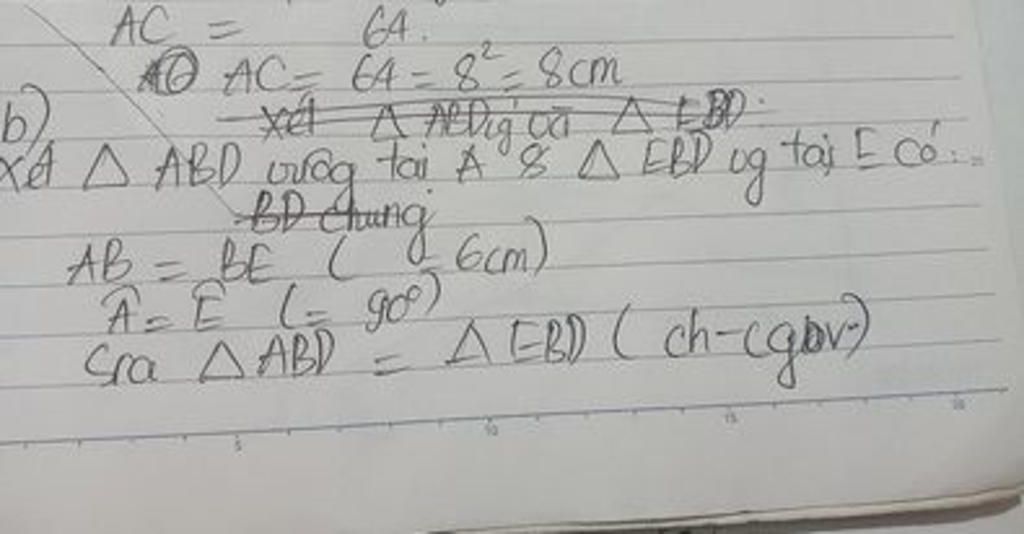 AC = 64.
AC = 64 = 8² = 8cm
b)
xét Δ ABD và Δ EBD.
xét Δ ABD vuôg tại A & Δ EBD vg tại E có:
BD chung
AB = BE ( = 6cm)
Â = Ê (= 90º)
Sra Δ ABD = Δ EBD ( ch-cgv)
5 10 15 20